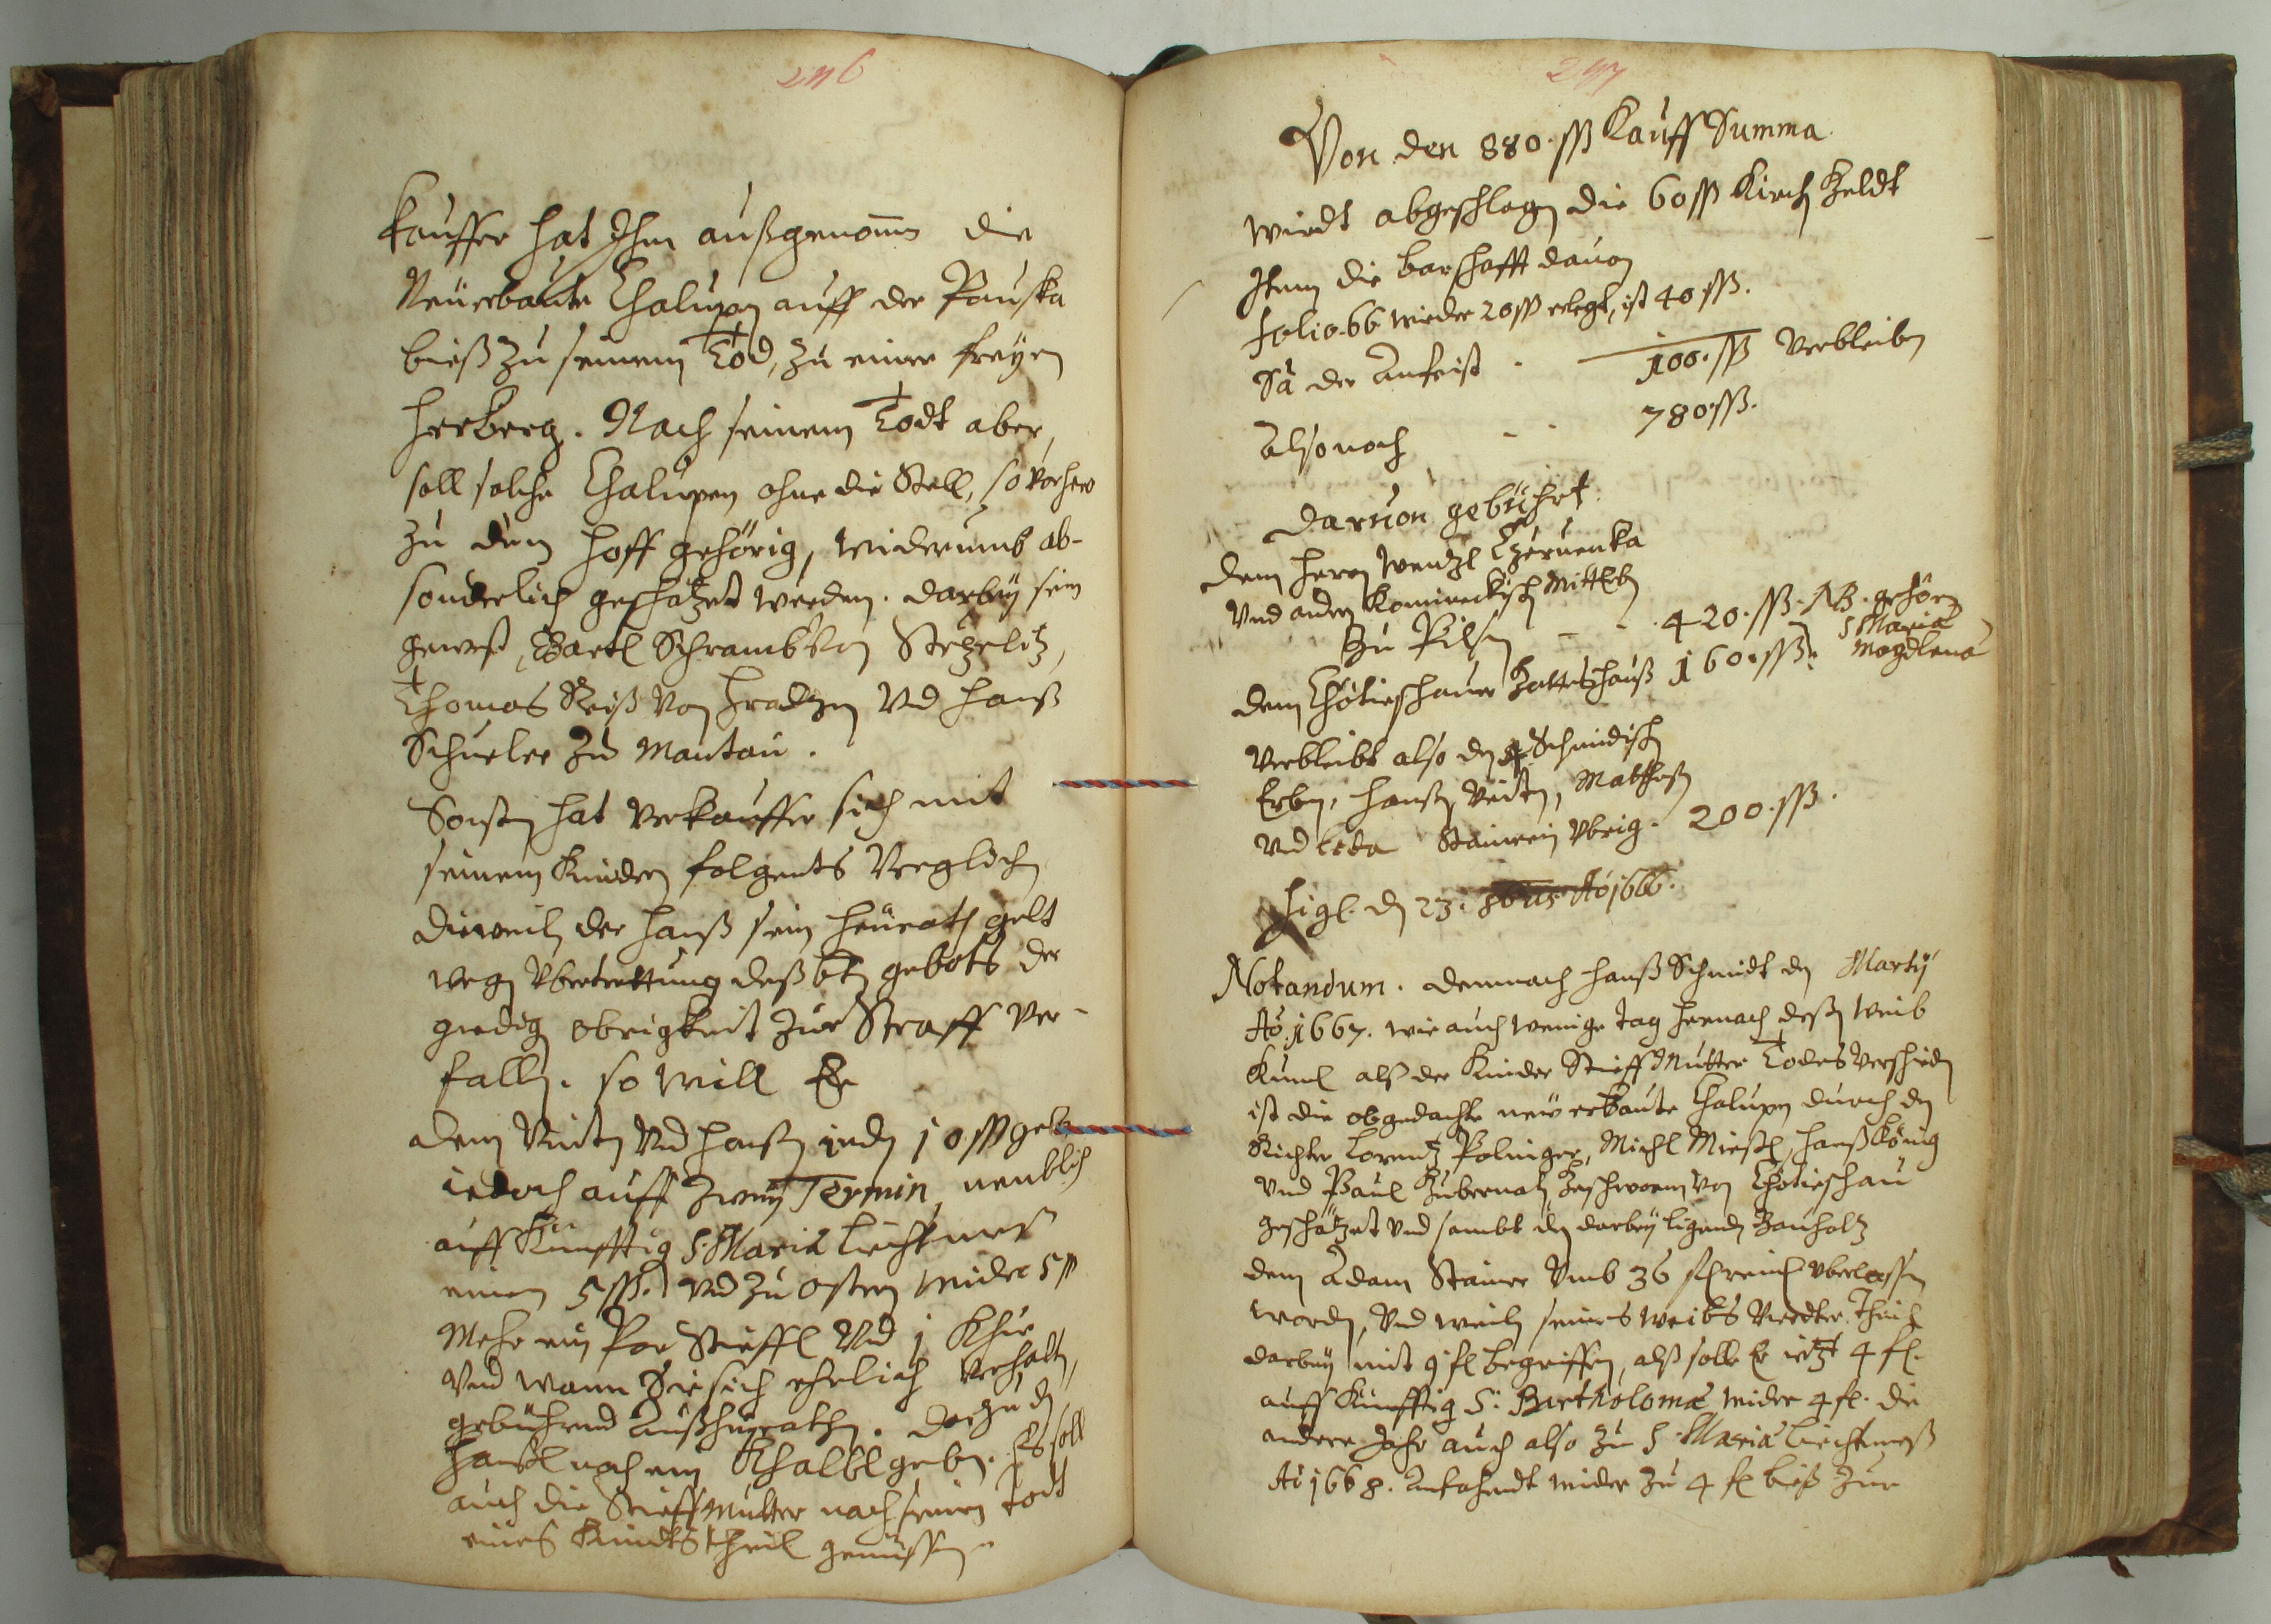 246
Kauffer hat Ihm außgenomen die
Neüerbaute Chalupen auff der Pauska
bieß zu seinem Tod, zu einer freyen
Herberg. Nach seinem Todt aber,
soll solche Chalupen ohne die Stell, so vorhero
zu dem Hoff gehörig, widerumb ab-
sonderlich geschätzet werden. darbey sein
geweßt, Bartl Schramb von Stetzelitz,
Thomas Reiß von Hradzen und Hanß
Schueler zu Mantau.
Sonsten hat Verkauffer sich mit
seinem Kindern folgents verglichen
dieweiln der Hanß sein Heürath gelt
wegen Übertrettung deß 6ten gebots der
gnedigen obrigkeit zur Straff ver-
fallen. so will Er
dem Veiten und Hanßen ieden 10 ß geben
iedoch auff zweÿ Termin, nemblich
auff Künfftig S: Maria Liechtmeß
einen 5 ß. und zu ostern wider 5 ß
Mehr ein Par Stieffl und 1 Khue
und wann Sie sich ehrlich verhalten,
gebührend Außheyrathen. darzu den
Hanßl noch ein Khalbl geben. Es soll
auch die Stieffmutter nach seinen Todt
eines Kindts theil genüssen.
247
Von den 880 ß Kauff Summa
wirdt abgeschlagen die 60 ß Kirchen geldt
Item die barschafft davon
folio 66 wieder 20 ß erlegt, ist 40 ß.
Sa der Anfrist - 100. ß verbleiben
Also noch - - 780 ß.
Darvon gebührt.
Dem Herrn Wentzl Czervenka
und andern Mitterben
Zu Pilsen - - 420. ß. NB. gehören
S Maria
dem Chotieschauer Gotteshauß 160. ß. Magdlena
Verbleibt also den 4 Schmidischen
Erben, Hanßen, Veiten, Matheßen
und Leda Stainerin übrig. 200. ß.
Sigl. den 23. 8bris Ao 1666.
Notandum. Demnach Hanß Schmidt den Martÿ
Ao. 1667. wie auch wenige tag hernach deßen weib
Kuml alß der Kinder Stieff Mutter Todes verschieden
ist die obgedachte new erbaute Chalupen durch den
Richter Lorentz Polinger, Michl Mießl, Hanß König
und Paul Gubernatz Geschworne von Chotieschau
geschätzet und sambt den darbey ligenden Bauholtz
dem Adam Stainer umb 36 fl reinl überlassen
worden, und weiln seines weibs Vierdter Theil
darbey mit 9 fl begriffen, alß solle Er ietzt 4 fl.
auff Künfftig S: Bartholomæ wider 4 fl. die
andere Jahr auch also zu S: Maria Liechtmeß
Ao 1668. Anfahendt wider zu 4 fl bieß zur